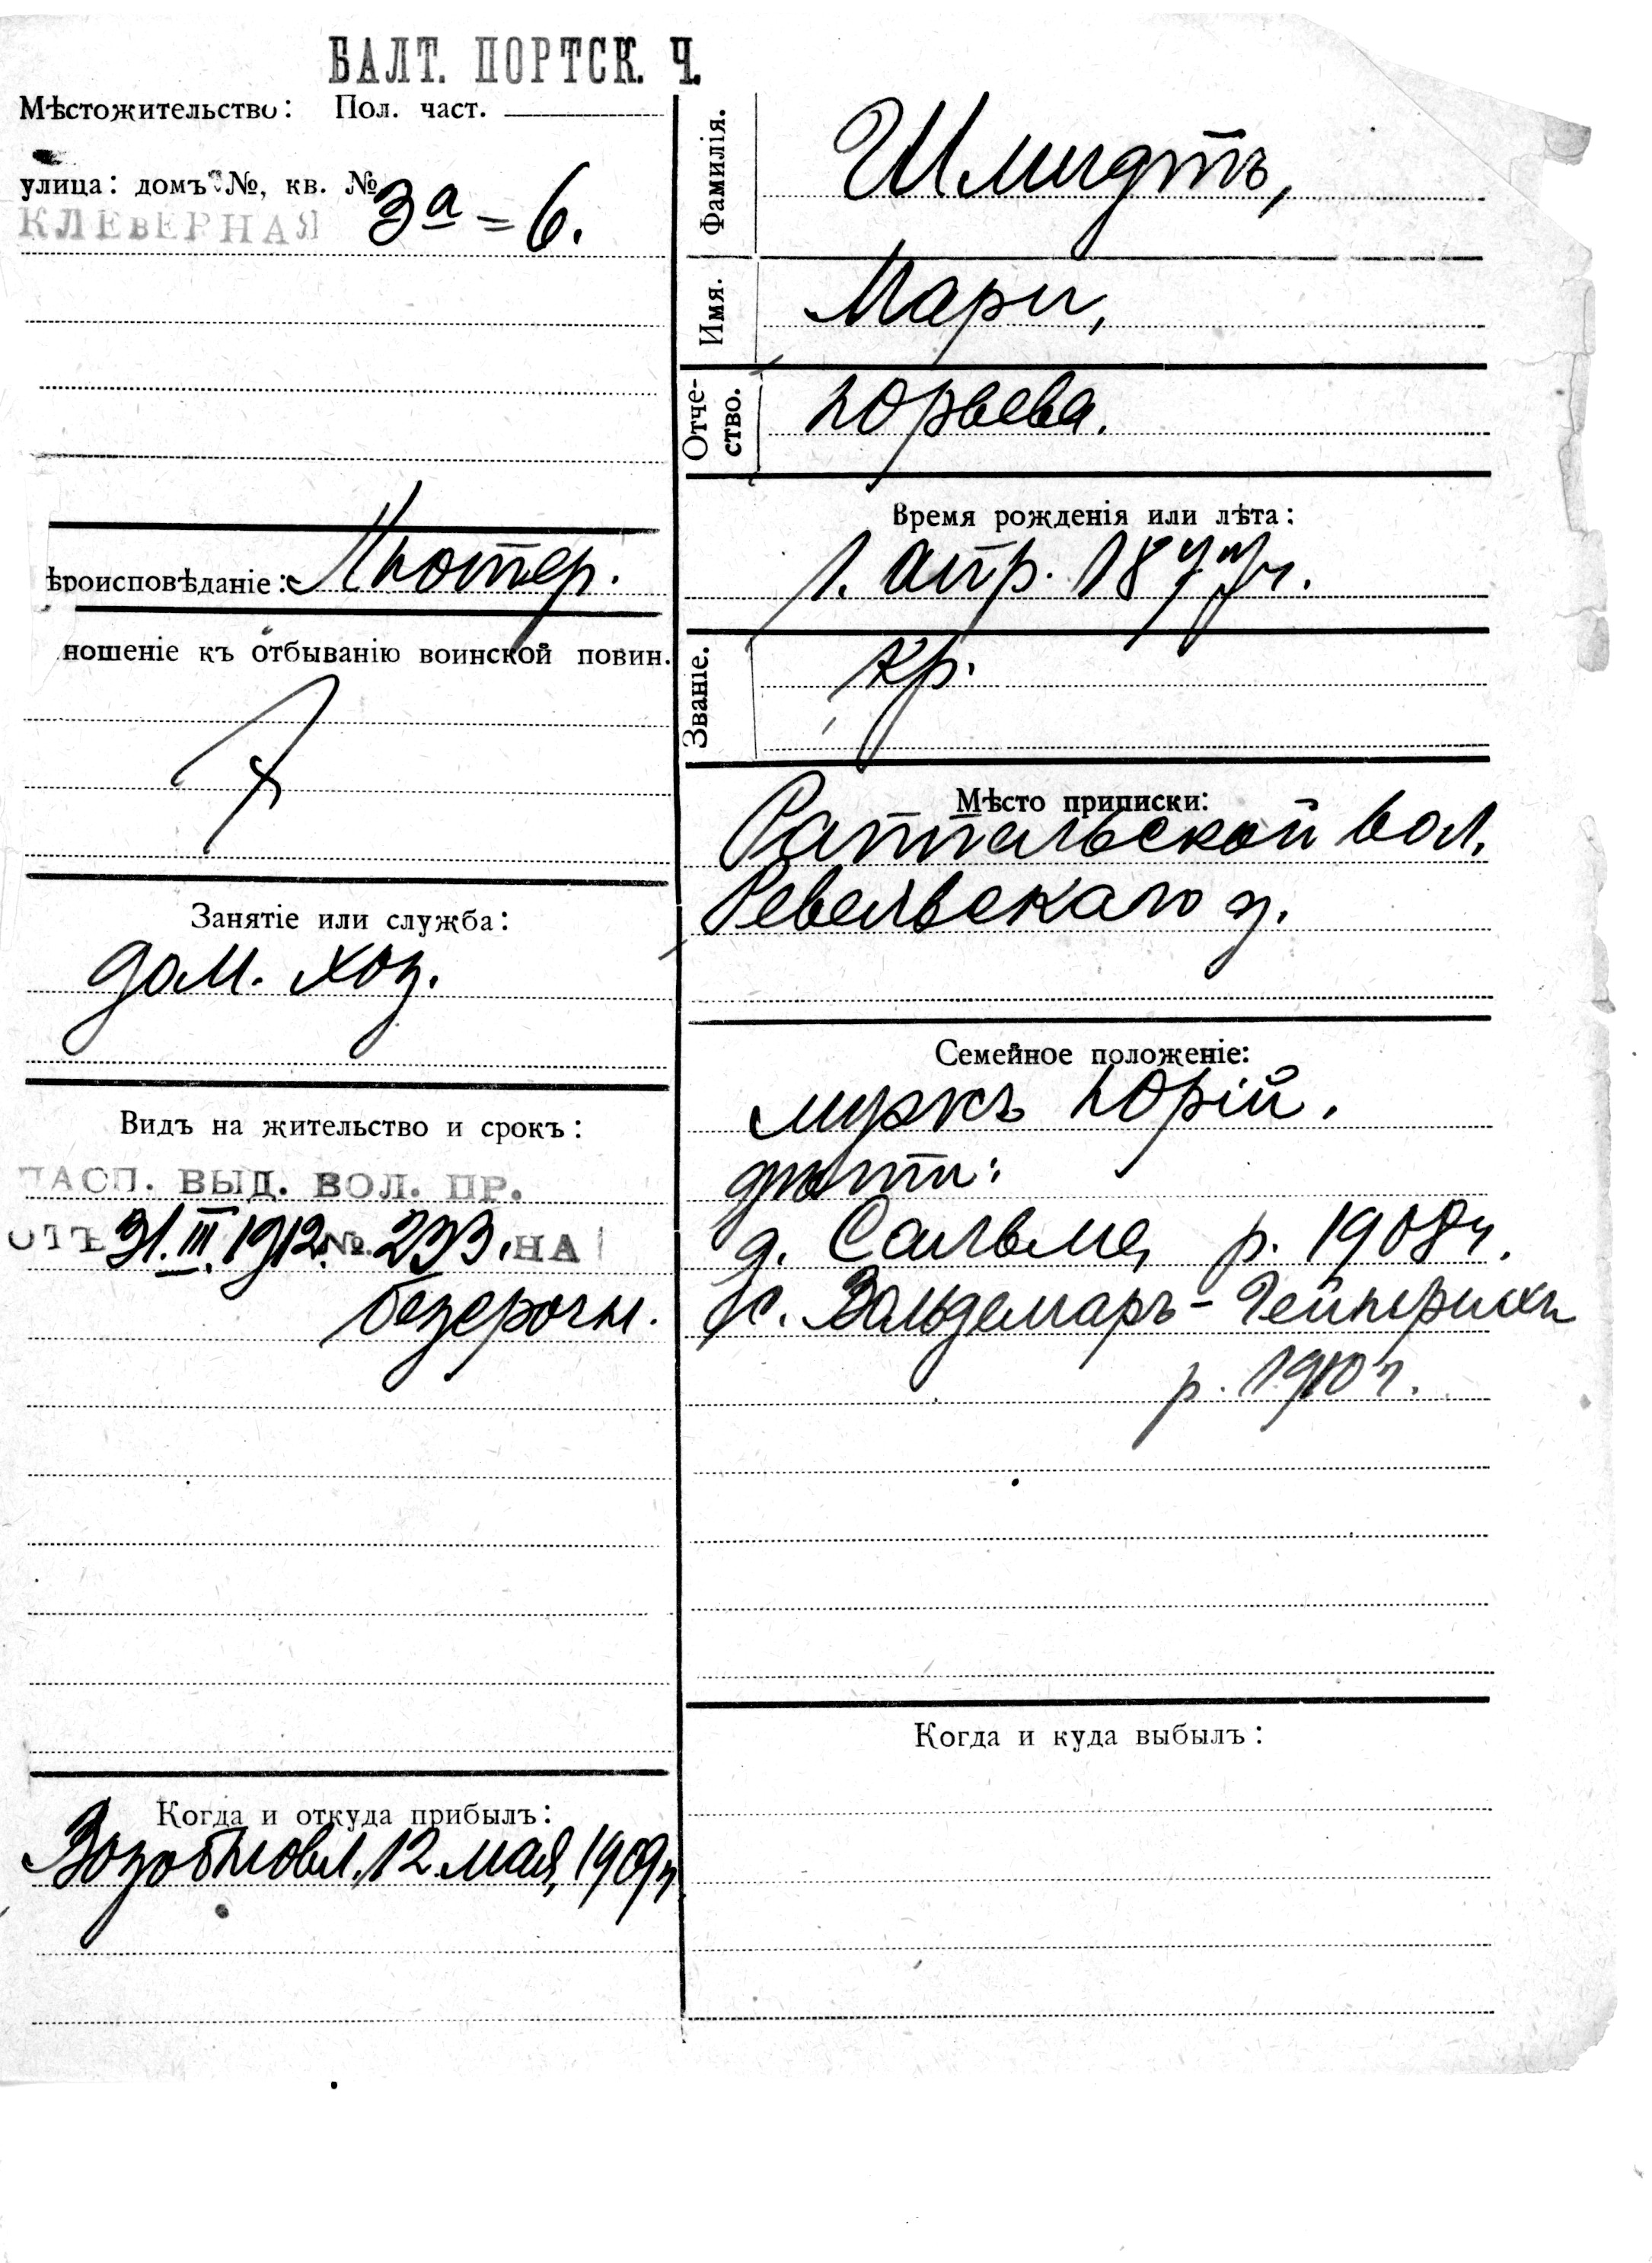 БАЛТ. ПОРТСК. Ч.
Мѣстожительство: Пол. част.
улица: домъ №, кв. №
КЛЕВЕРНАЯ 3а = 6.
ѣроисповѣданіе: Лютер.
ношеніе къ отбыванію воинской повин.
Занятіе или служба:
дом. хоз.
Видъ на жительство и срокъ:
ПАСП. ВЫД. ВОЛ. ПР.
ОТЪ 31.III.1912 №. 233. НА
безсрочн.
Когда и откуда прибылъ:
Возобновл. 12 мая, 1909 г.
Фамилія.
Шмидтъ,
Имя.
Мари,
Отче-
ство.
Юрьева.
Время рожденія или лѣта:
1. апр. 1877 г.
Званіе.
кр.
Мѣсто приписки:
Раппельской вол.
Ревельскаго у.
Семейное положеніе:
мужъ Юрій.
дѣти:
д. Сальме, р. 1908 г.
с. Вальдемаръ-Гейнрихъ
р. 1910 г.
Когда и куда выбылъ: